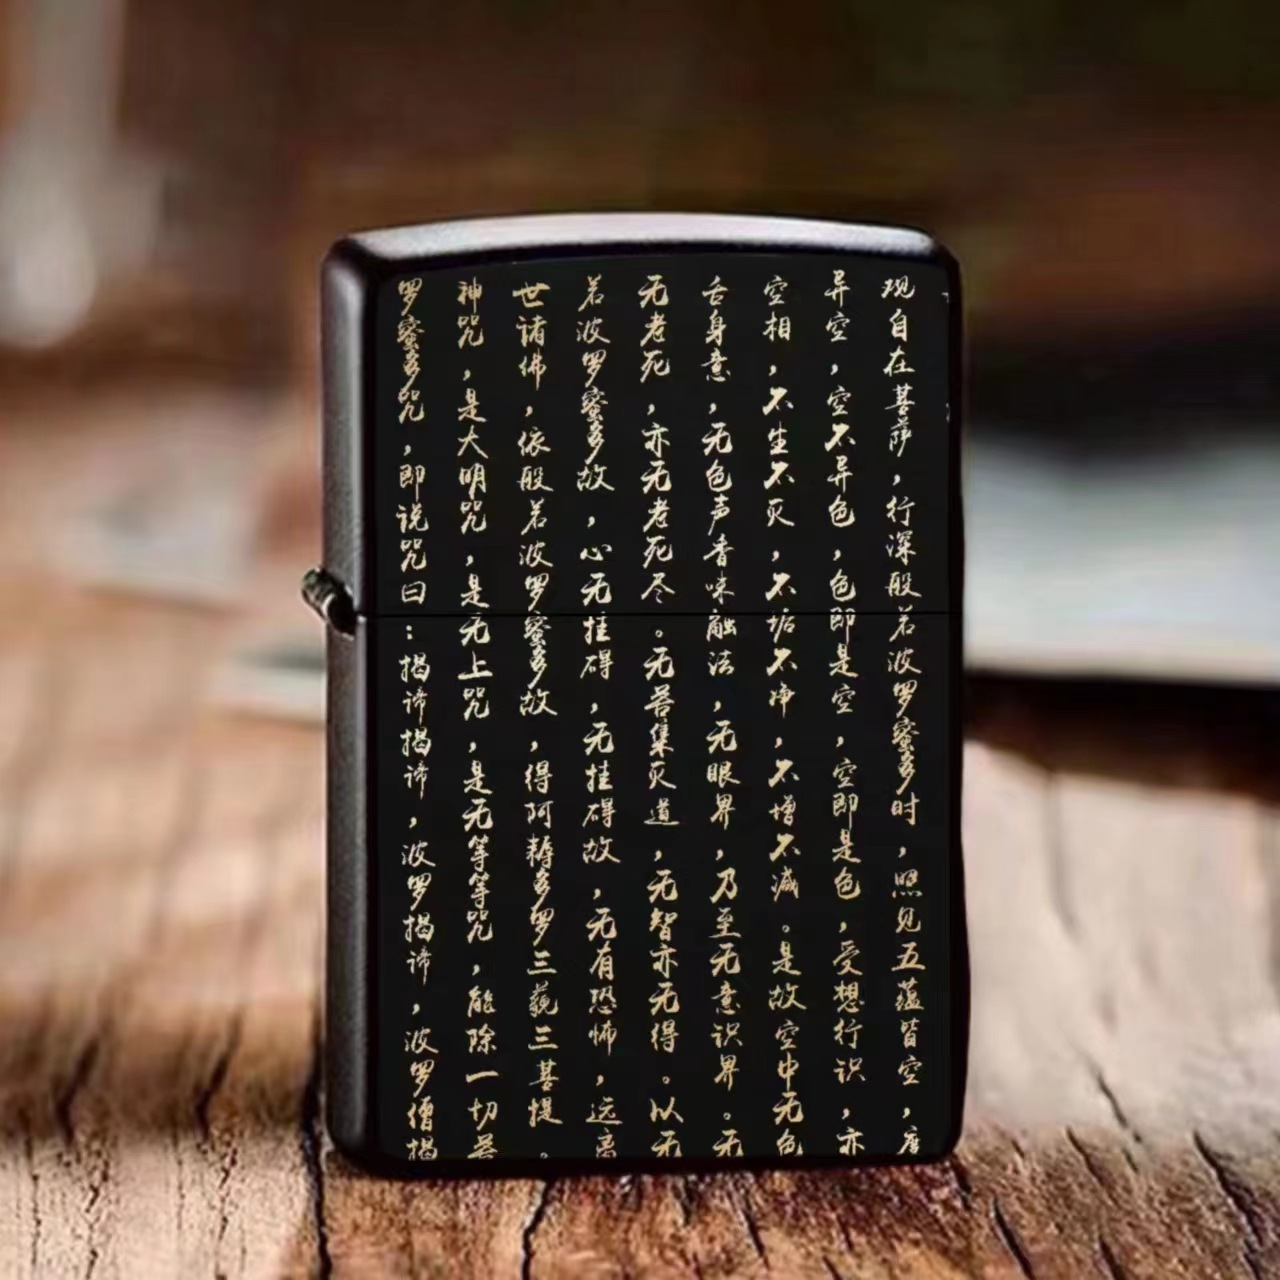 现自在菩萨，行深般若波罗蜜多时，照见五蕴皆空，度
异空，空不异色，色即是空，空即是色，受想行识，亦
空相，不生不灭，不垢不净，不增不减。是故空中无色
舌身意，无色声香味触法，无眼界，乃至无意识界。无
无老死，亦无老死尽。无苦集灭道，无智亦无得。以无
若波罗蜜多故，心无挂碍，无挂碍故，无有恐怖，远离
世诸佛，依般若波罗蜜多故，得阿耨多罗三藐三菩提。
神咒，是大明咒，是无上咒，是无等等咒，能除一切苦
罗蜜多咒，即说咒曰：揭谛揭谛，波罗揭谛，波罗僧揭